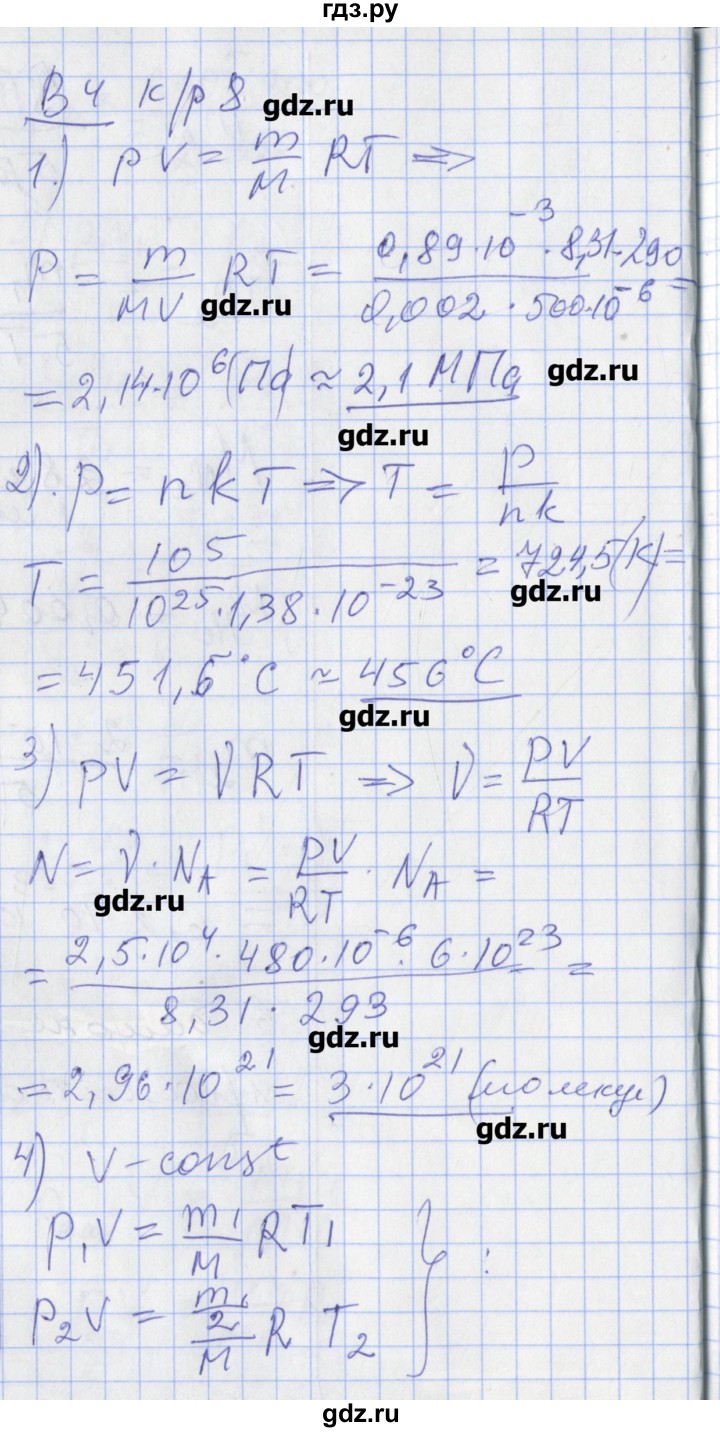 гдз.ру
В 4 к/р 8 gdz.ru
1.) pV = m/M RT ⇒
P = m/MV RT = 0,89·10⁻³·8,31·290 / 0,002·500·10⁻⁶ =
gdz.ru
= 2,14·10⁶(Па) ≈ 2,1 МПа gdz.ru
gdz.ru
2). p = nkT ⇒ T = p/nk
T = 105 / 10²⁵·1,38·10⁻²³ = 724,5(К) =
gdz.ru
= 451,5°C ≈ 456°C
gdz.ru
3) pV = νRT ⇒ ν = PV/RT
N = ν·N_A = PV/RT · N_A =
gdz.ru
= 2,5·10⁴·480·10⁻⁶·6·10²³ / 8,31·293 =
gdz.ru
= 2,96·10²¹ = 3·10²¹ (молекул)
gdz.ru
4) V - const
P₁V = m₁/M RT₁
P₂V = m₁/2/M R T₂ } :
gdz.ru